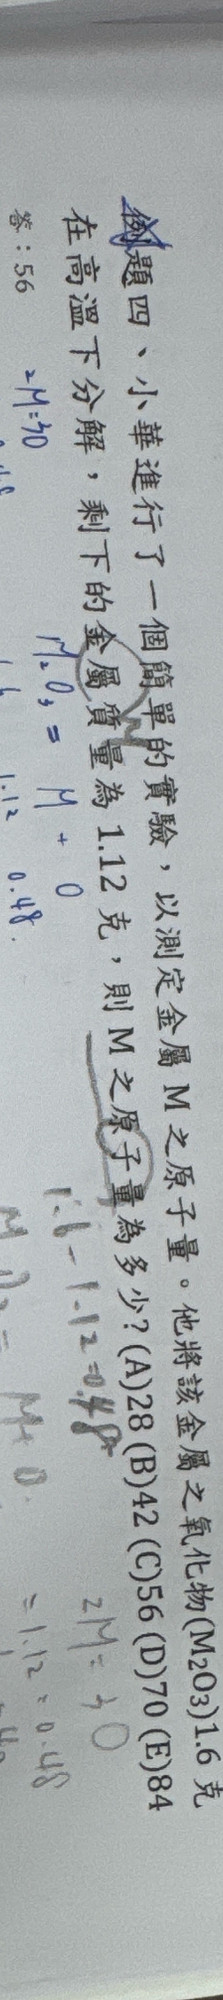 例題四、小華進行了一個簡單的實驗，以測定金屬 M 之原子量。他將該金屬之氧化物(M₂O₃)1.6 克
在高溫下分解，剩下的金屬質量為 1.12 克，則 M 之原子量為多少？(A)28 (B)42 (C)56 (D)70 (E)84
答：56
2M=30
M₂O₃ = M + O
1.12 0.48.
1.6-1.12=0.48
2M=30
M+O.
=1.12=0.48